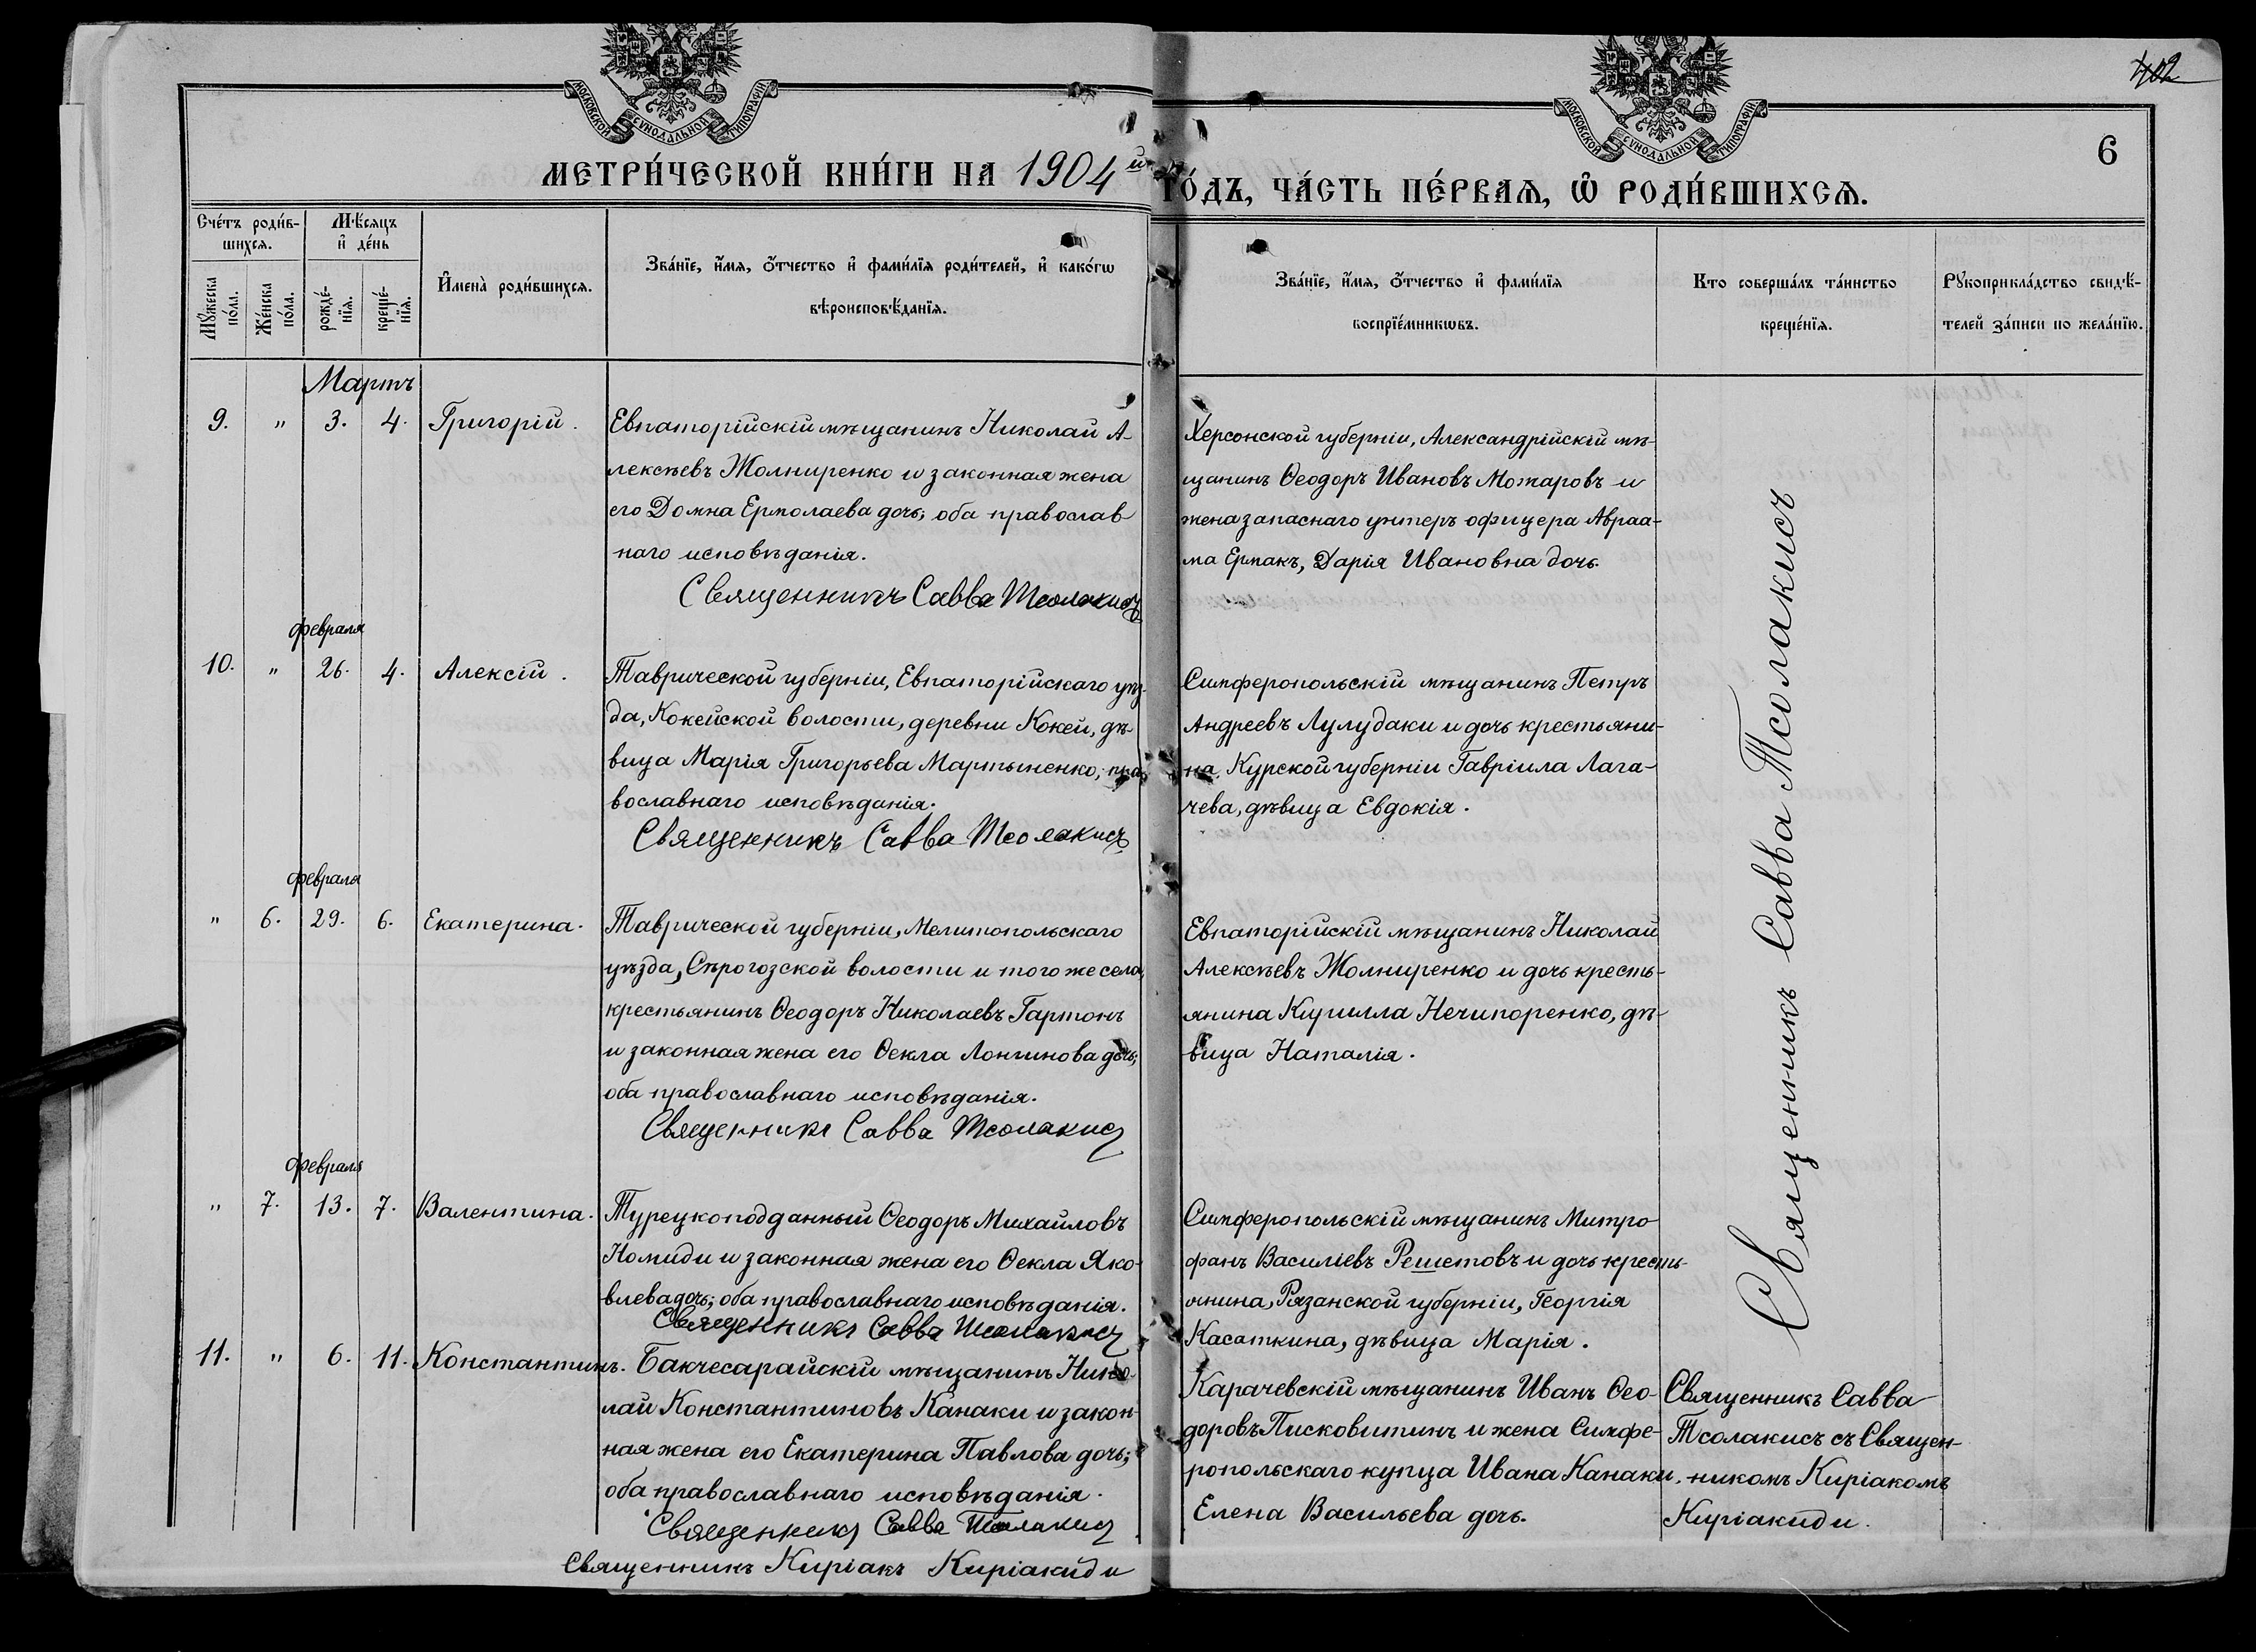 МОСКОВСКОЙ СѴНОДАЛЬНОЙ ТИПОГРАФІИ
МОСКОВСКОЙ СѴНОДАЛЬНОЙ ТИПОГРАФІИ
402
6
МЕТРИ́ЧЕСКОЙ КНИ́ГИ НА 1904й ГО́ДЪ, ЧА́СТЬ ПЕ́РВАѦ, Ѡ҆ РОДИ́ВШИХСѦ.
Сче́тъ роди́в-
шихсѧ.
Мѣ́сѧцъ
и҆ де́нь
Мꙋ́жеска
по́ла.
Же́нска
по́ла.
рожде́-
нїѧ.
креще́-
нїѧ.
И҆мена̀ роди́вшихсѧ.
Зва́нїе, и҆́мѧ, ѻ҆́тчество и҆ фами́лїѧ роди́телей, и҆ како́гѡ
вѣроисповѣ́данїѧ.
Зва́нїе, и҆́мѧ, ѻ҆́тчество и҆ фами́лїѧ
воспрїе́мникѡвъ.
Кто соверша́лъ та́инство
креще́нїѧ.
Рꙋкоприкла́дство свидѣ́-
телей за́писи по жела́нїю.
Мартъ
9. " 3. 4. Григорій.
Евпаторійскій мѣщанинъ Николай А-
лексѣевъ Жолниренко и законная жена
его Домна Ермолаева дочь; оба православ
наго исповѣданія.
Священникъ Савва Тсолакисъ
Херсонской губерніи, Александрійскій мѣ-
щанинъ Ѳеодоръ Ивановъ Можаровъ и
жена запаснаго унтеръ офицера Авраа-
ма Ермакъ, Дарія Ивановна дочь.
февраля
10. " 26. 4. Алексій.
Таврической губерніи, Евпаторійскаго уѣз-
да, Кокейской волости, деревни Кокей, дѣ-
вица Марія Григорьева Мартыненко; пра-
вославнаго исповѣданія.
Священникъ Савва Тсолакисъ
Симферопольскій мѣщанинъ Петръ
Андреевъ Лулудаки и дочь крестьяни-
на, Курской губерніи Гавріила Лага-
чева, дѣвица Евдокія.
февраля
" 6. 29. 6. Екатерина.
Таврической губерніи, Мелитопольскаго
уѣзда, Сѣрогозской волости и того же села,
крестьянинъ Ѳеодоръ Николаевъ Гартонъ
и законная жена его Ѳекла Лонгинова дочь;
оба православнаго исповѣданія.
Священникъ Савва Тсолакисъ
Евпаторійскій мѣщанинъ Николай
Алексѣевъ Жолниренко и дочь кресть-
янина Кирилла Нечипоренко, дѣ-
вица Наталія.
февраля
" 7. 13. 7. Валентина.
Турецкоподданный Ѳеодоръ Михайловъ
Номиди и законная жена его Ѳекла Яко-
влева дочь; оба православнаго исповѣданія.
Священникъ Савва Тсолакисъ
Симферопольскій мѣщанинъ Митро
фанъ Василіевъ Решетовъ и дочь кресть-
янина, Рязанской губерніи, Георгія
Касаткина, дѣвица Марія.
Священникъ Савва Тсолакисъ
11. " 6. 11. Константинъ.
Бакчесарайскій мѣщанинъ Нико-
лай Константиновъ Канаки и закон-
ная жена его Екатерина Павлова дочь;
оба православнаго исповѣданія.
Священникъ Савва Тсолакисъ
Священникъ Киріакъ Киріакиди
Карачевскій мѣщанинъ Иванъ Ѳео-
доровъ Писковитинъ и жена Симфе-
ропольскаго купца Ивана Канаки,
Елена Васильева дочь.
Священникъ Савва
Тсолакисъ съ Священ-
никомъ Киріакомъ
Киріакиди.